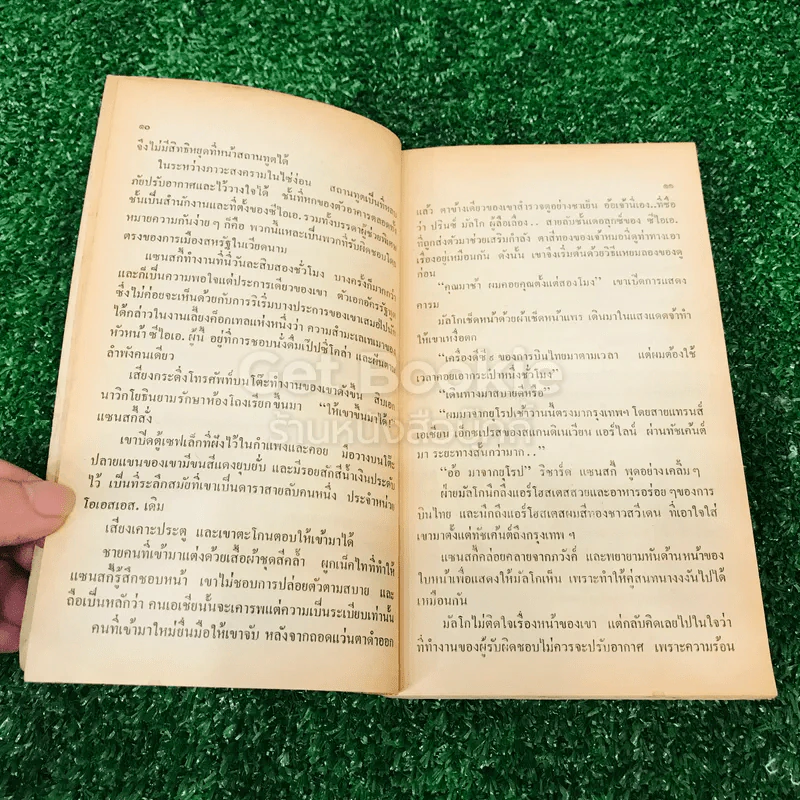 ๑๐
จึงไม่มีสิทธิหยุดที่หน้าสถานทูตได้
ในระหว่างภาวะสงครามในไซ่ง่อน สถานทูตเป็นที่หลบ
ภัยปรับอากาศและไว้วางใจได้ ชั้นที่หกของตัวอาคารตลอดทั้ง
ชั้นเป็นสำนักงานและที่ตั้งของซีไอเอ. รวมทั้งบรรดาผู้ช่วยพิเศษ
หมายความกันง่าย ๆ ก็คือ พวกนี้แหละเป็นพวกที่รับผิดชอบโดย
ตรงของการเมืองสหรัฐในเวียดนาม
แซนสกี้ทำงานที่นี่วันละสิบสองชั่วโมง บางครั้งก็มากกว่า
และก็เป็นความพอใจแต่ประการเดียวของเขา ตัวเอกอัครรัฐทูต
ซึ่งไม่ค่อยจะเห็นด้วยกับการริเริ่มบางประการของเขาเสมอไปนัก
ได้กล่าวในงานเลี้ยงค็อกเทลแห่งหนึ่งว่า ความสำมะเลเทเมาของ
หัวหน้า ซีไอเอ. ผู้นี้ อยู่ที่การชอบนั่งดื่มเป๊ปซี่โคล่า และฝันตาม
ลำพังคนเดียว
เสียงกระดิ่งโทรศัพท์บนโต๊ะทำงานของเขาดังขึ้น สิบเอก
นาวิกโยธินยามรักษาห้องโถงเรียกขึ้นมา "ให้เขาขึ้นมาได้"
แซนสกี้สั่ง
เขาปิดตู้เซฟเล็กที่ฝังไว้ในกำแพงและคอย มือวางบนโต๊ะ
ปลายแขนของเขามีขนสีแดงยุบยั่บ และมีรอยสักสีน้ำเงินประดับ
ไว้ เป็นที่ระลึกสมัยที่เขาเป็นดาราสายลับคนหนึ่ง ประจำหน่วย
โอเอสเอส. เดิม
เสียงเคาะประตู และเขาตะโกนตอบให้เข้ามาได้
ชายคนที่เข้ามาแต่งด้วยเสื้อผ้าชุดสีคล้ำ ผูกเน็คไทที่ทำให้
แซนสกี้รู้สึกชอบหน้า เขาไม่ชอบการปล่อยตัวตามสบาย และ
ถือเป็นหลักว่า คนเอเซียนั้นจะเคารพแต่ความเป็นระเบียบเท่านั้น
คนที่เข้ามาใหม่ยื่นมือให้เขาจับ หลังจากถอดแว่นตาดำออก
๑๑
แล้ว ตาข้างเดียวของเขาสำรวจดูอย่างชาเย็น อ้อเจ้านี่เอง..ที่ชื่อ
ว่า ปรินซ์ มัลโก ผู้ลือเลื่อง.. สายลับชั้นเดอลุกซ์ของ ซีไอเอ.
ที่ถูกส่งตัวมาช่วยเสริมกำลัง ตาสีทองของเจ้าหมอนี่ดูท่าทางเอา
เรื่องอยู่เหมือนกัน ดังนั้น เขาจึงเริ่มต้นด้วยวิธีแหยมลองของดู
ก่อน
"คุณมาช้า ผมคอยคุณตั้งแต่สองโมง" เขาเปิดการแสดง
คารม
มัลโกเช็ดหน้าด้วยผ้าเช็ดหน้าแพร เดินมาในแสงแดดจ้าทำ
ให้เขาเหงื่อตก
"เครื่องดีซี ๘ ของการบินไทยมาตามเวลา แต่ผมต้องใช้
เวลาคอยเอากระเป๋าหนึ่งชั่วโมง"
"เดินทางมาสบายดีหรือ"
"ผมมาจากยุโรปเช้าวานนี้ตรงมากรุงเทพฯ โดยสายแทรนส์
เอเชียน เอ็กซเปรสของสแกนดิเนเวียน แอร์ไลน์ ผ่านทัชเค้นต์
มา ระยะทางสั้นกว่ามาก.."
"อ้อ มาจากยุโรป" ริชาร์ด แซนสกี้ พูดอย่างเคลิ้ม ๆ
ฝ่ายมัลโกนึกถึงแอร์โฮสเตสสวยและอาหารอร่อย ๆของการ
บินไทย และนึกถึงแอร์โฮสเตสผมสีทองชาวสวีเดน ที่เอาใจใส่
เขามาตั้งแต่ทัชเค้นต์ถึงกรุงเทพ ๆ
แซนสกี้ค่อยคลายจากภวังค์ และพยายามหันด้านหน้าของ
ใบหน้าเพื่อแสดงให้มัลโกเห็น เพราะทำให้คู่สนทนางงงันไปได้
เหมือนกัน
มัลโกไม่ติดใจเรื่องหน้าของเขา แต่กลับคิดเลยไปในใจว่า
ที่ทำงานของผู้รับผิดชอบไม่ควรจะปรับอากาศ เพราะความร้อน
Get Bookie
ร้านหนังสือจุฬา